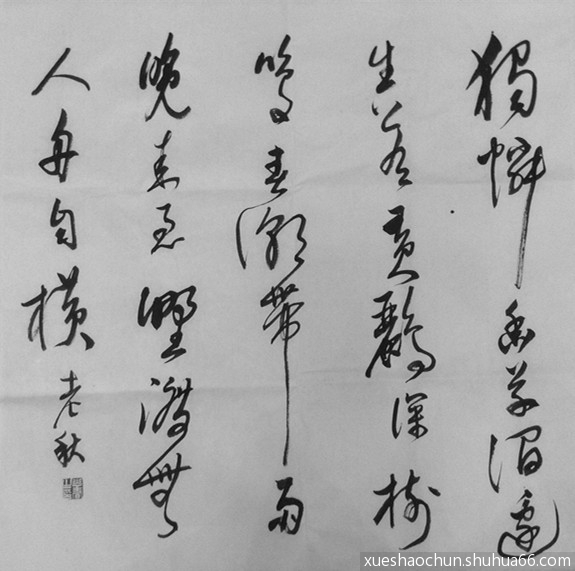 獨憐幽草澗邊
生上有黄鸝深樹
鳴春潮帶雨
晚来急野渡無
人舟自横 老秋
xueshaochun.shuhua66.com